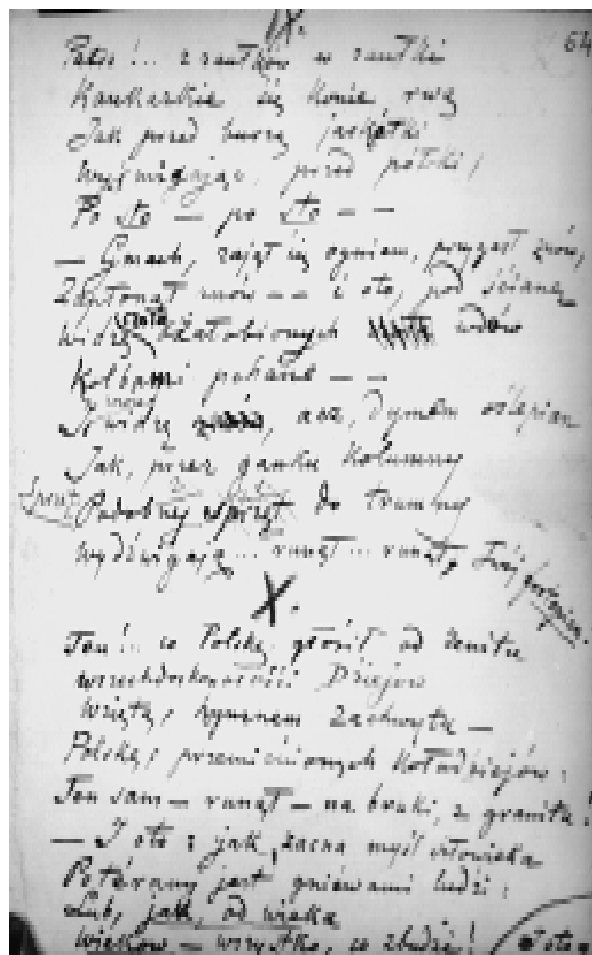 IX.
64
Patrz!... z zaułków w zaułki
Kaukaskie się konie rwą
Jak przed burzą jaskółki
Wyśmigając przed pułki,
Po sto — po sto — —
— Gmach, zajął się ogniem, przygasł znów,
Zapłonął znów — — i oto, pod ścianę
Widzę czoła ożałobionych wdów
Kolbami pchane — —
I znowu widzę, acz dymem oślepian
Jak przez ganku kolumny
Sprzęt Podobny do trumny
wydźwigają... runął... runął, Twój fortepian!
X.
Ten!... co Polskę głosił od zenitu
wszechdoskonałości Dziejów
Wziętą, hymnem zachwytu —
Polskę, przemienionych kołodziejów;
Ten sam — runął — na bruki, z granitu!
— I oto: jak zacna myśl człowieka
Poterany jest gniewami ludzi;
Lub, jak, od wieka
Wieków — wszystko, co zbudzi!